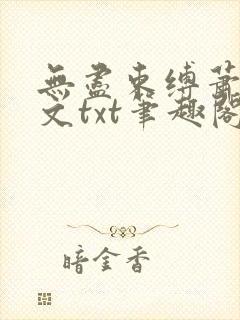 無盡束縛蕭
文txt筆趣閣
暗金香